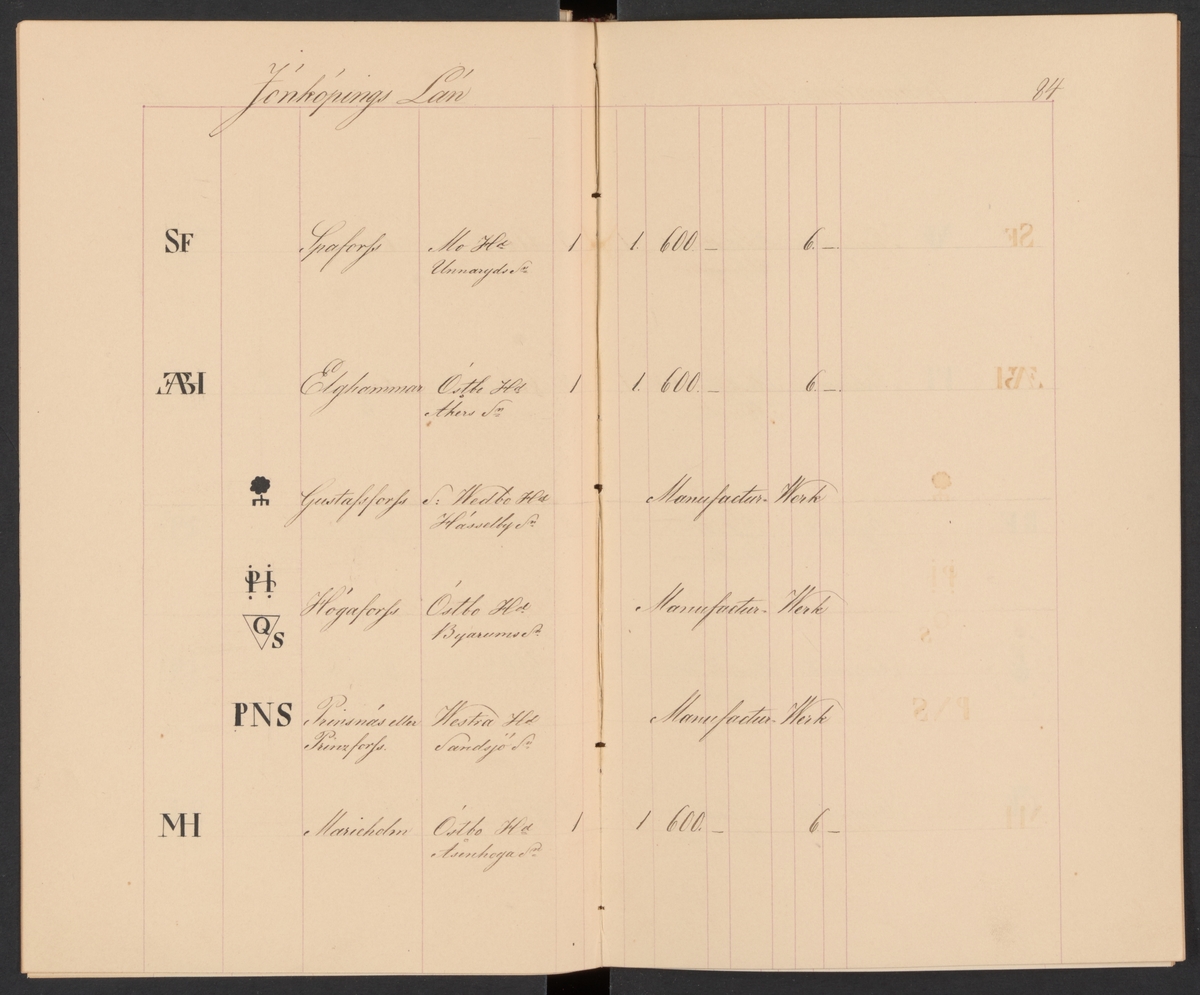 Jönköpings Län
84
SF Spaforss Mo Hd 1 1. 600. — 6. —.
Unnaryds Sn
Elghammar Östbo Hd 1 1. 600. — 6. —.
Åkers Sn
Gustafsforss S: Wedbo Hd Manufactur-Werk
Hässelby Sn
Högaforss Östbo Hd Manufactur-Werk
Byarums Sn
QS
PNS Prinsnäs eller Westra Hd Manufactur-Werk
Prinzforss. Sandsjö Sn
MH Marieholm Östbo Hd 1 1 600. — 6 —
Åsenhöga Sn